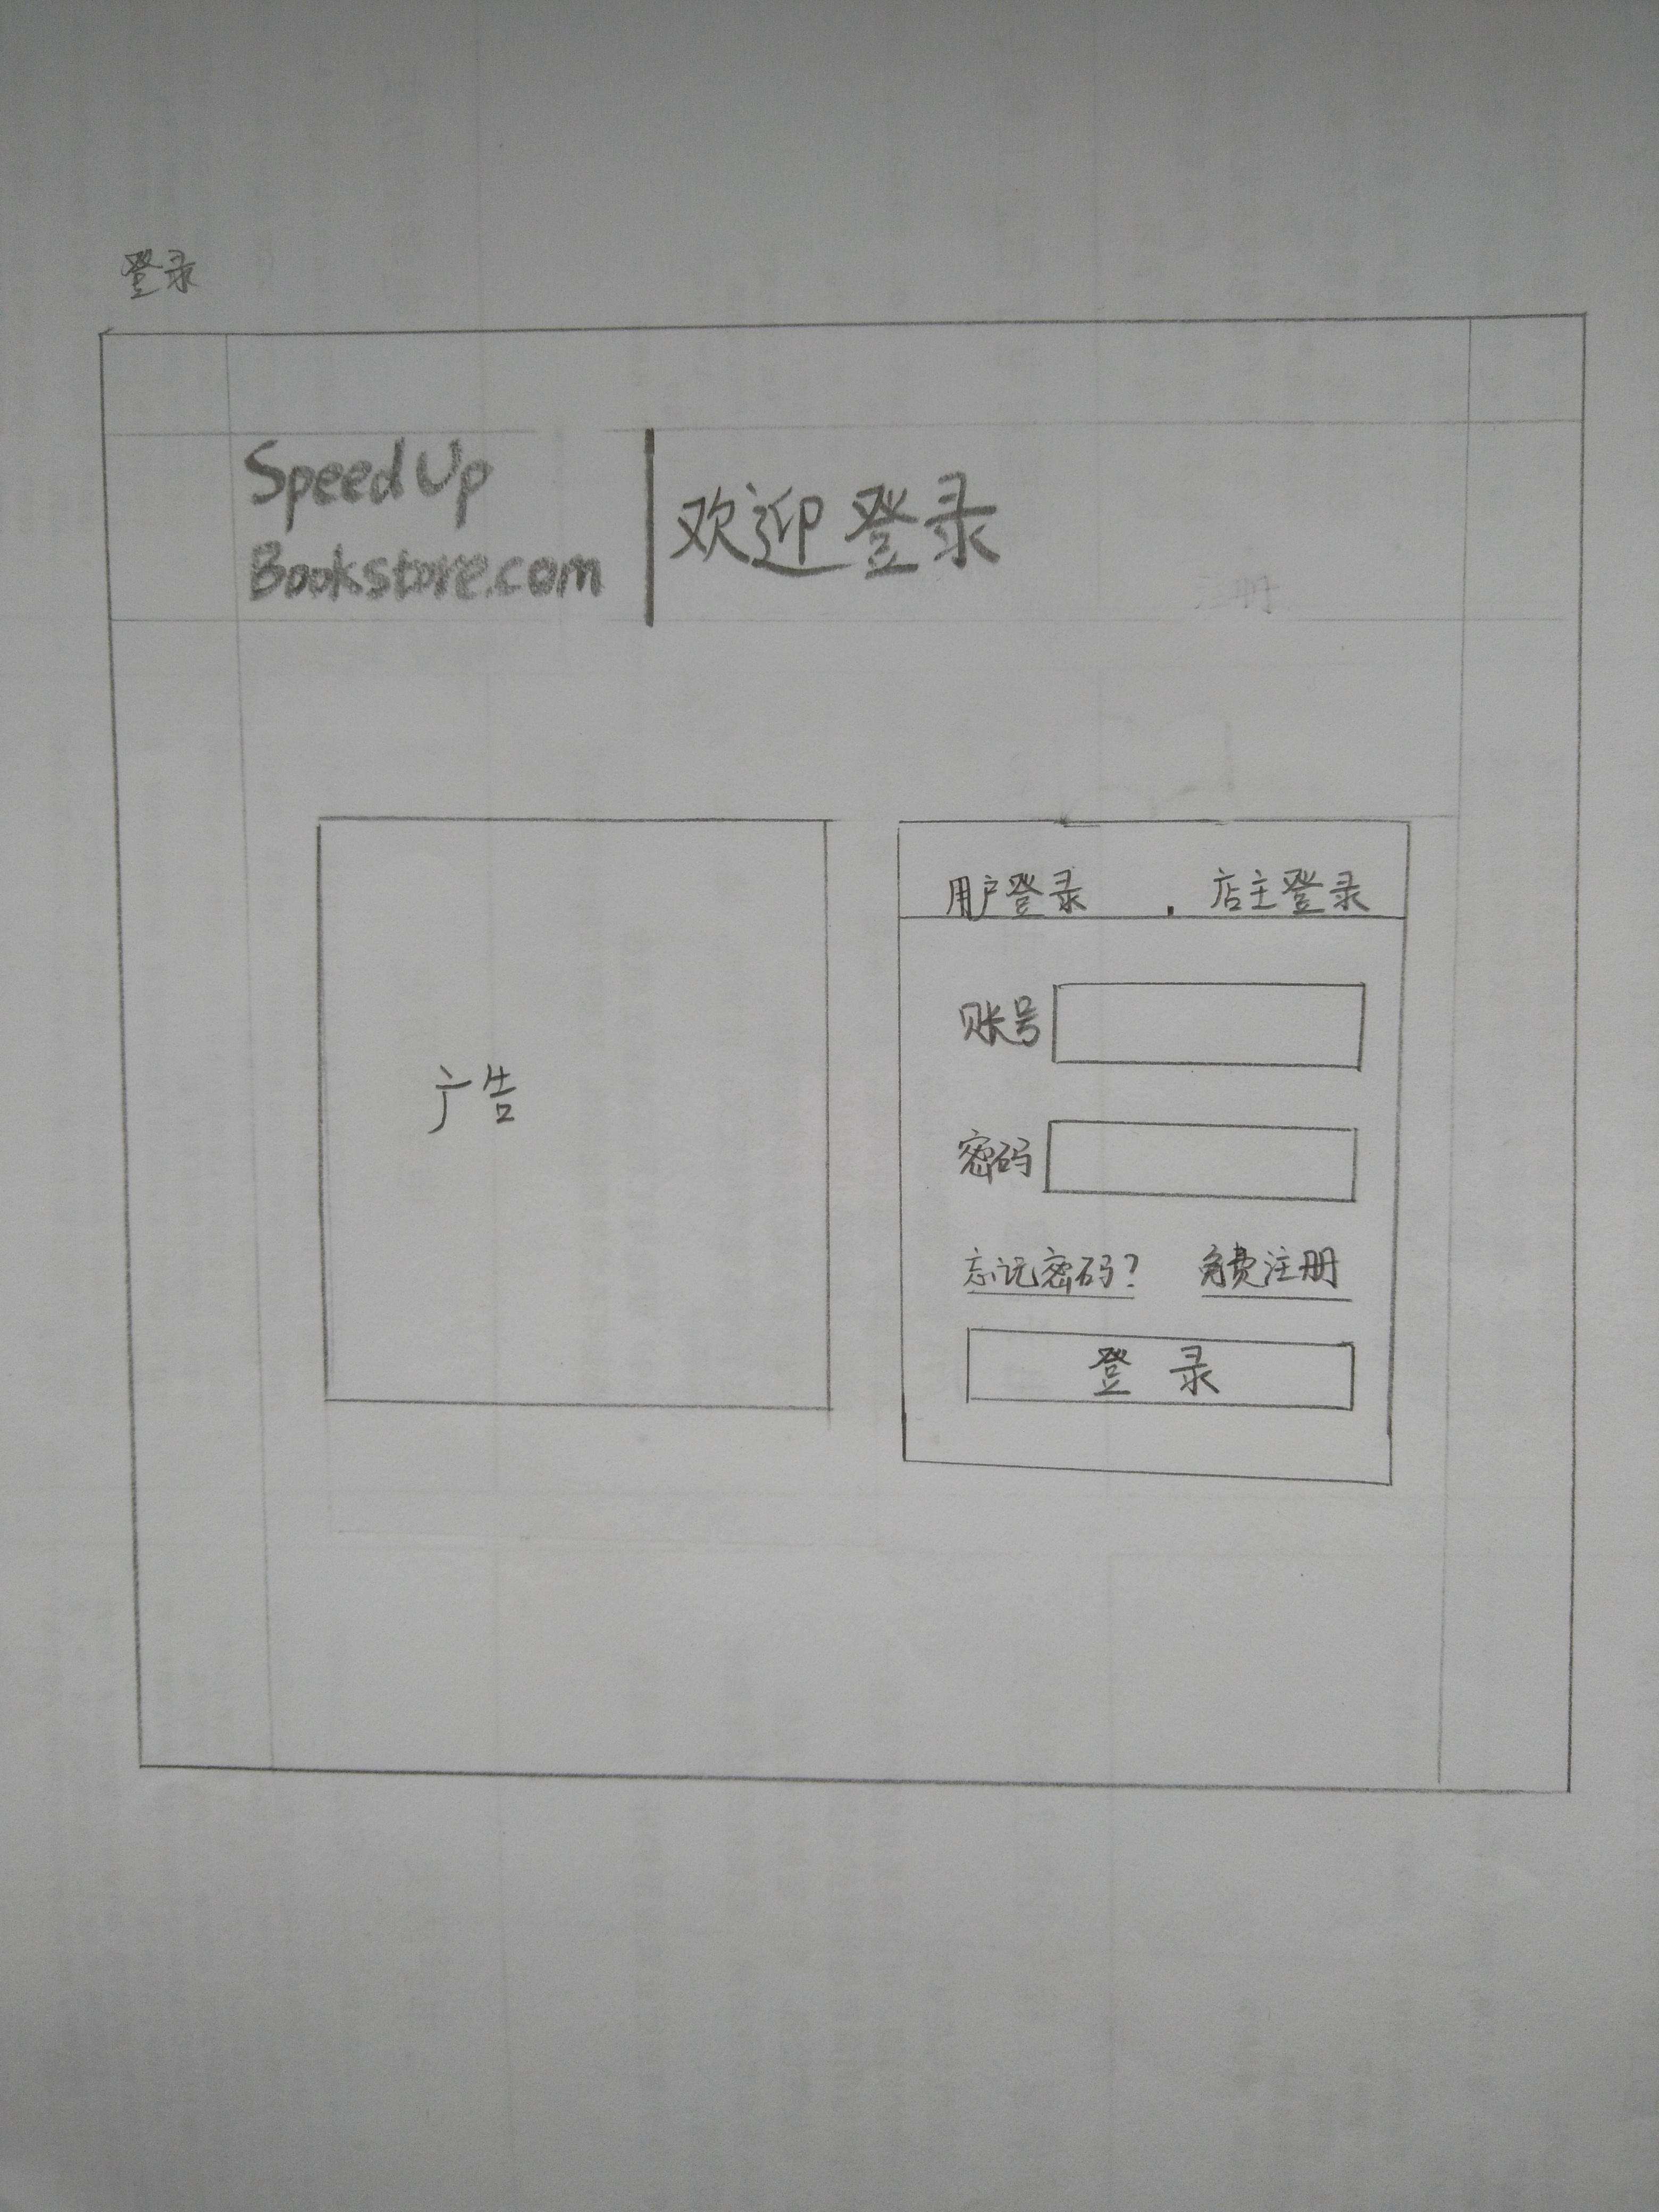 登录
Speed Up
Bookstore.com
欢迎登录
注册
广告
用户登录 . 店主登录
账号
密码
忘记密码? 免费注册
登 录